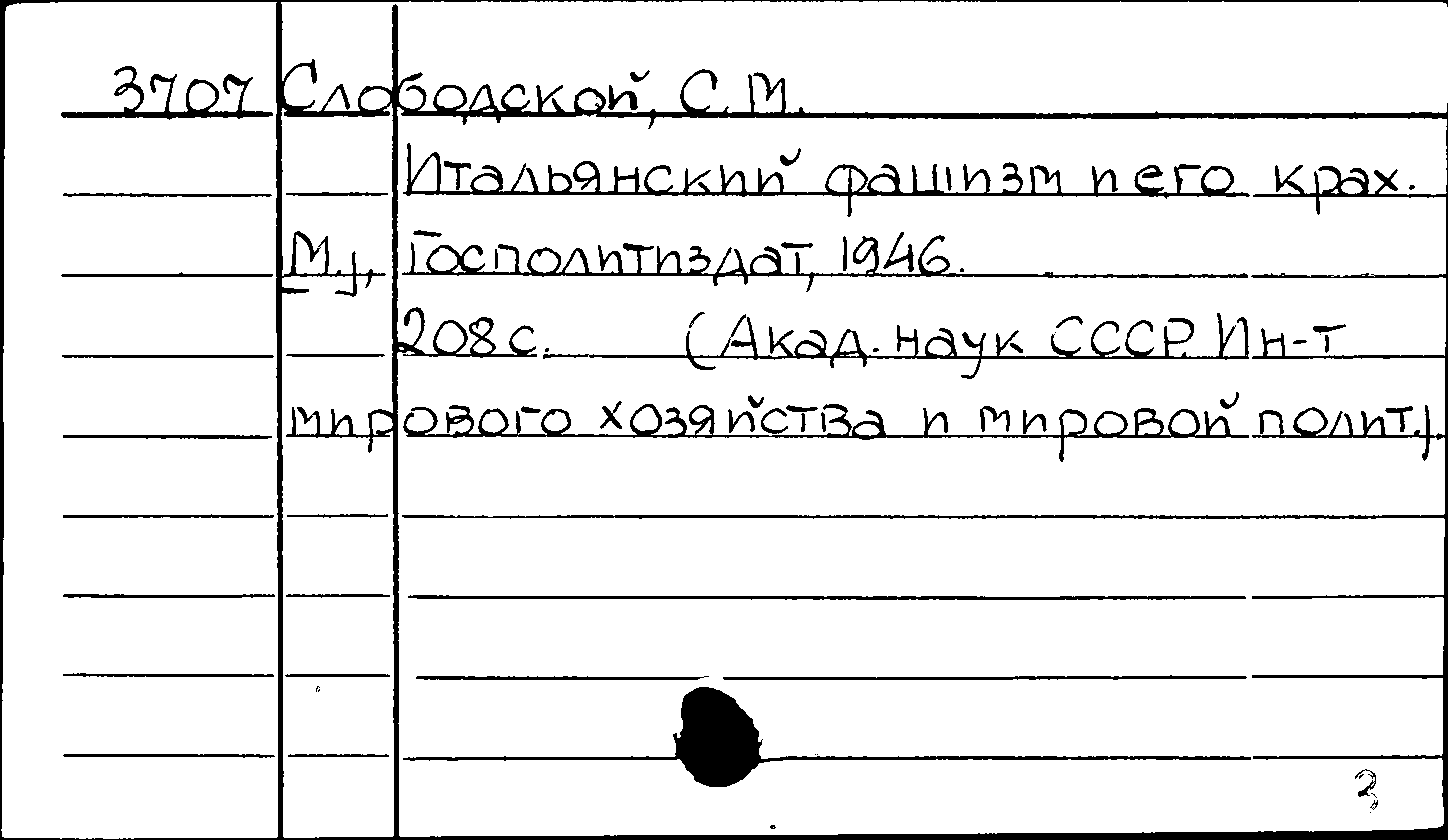 3707 Слободской, С. М.
Итальянский фашизм и его крах.
М.], Госполитиздат, 1946.
208 с. (Акад. наук СССР. Ин-т
мирового хозяйства и мировой полит.).